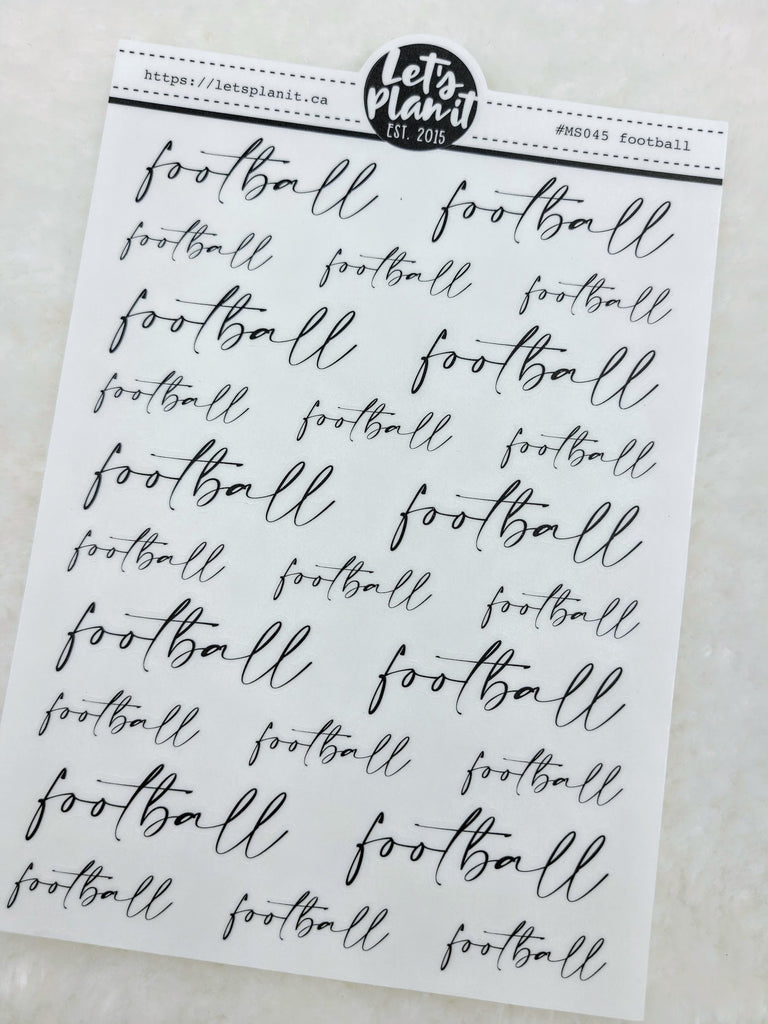 https://letsplanit.ca
Let's
plan it
EST. 2015
#MS045 football
football football
football football football
football football
football football football
football football
football football football
football football
football football football
football football
football football football